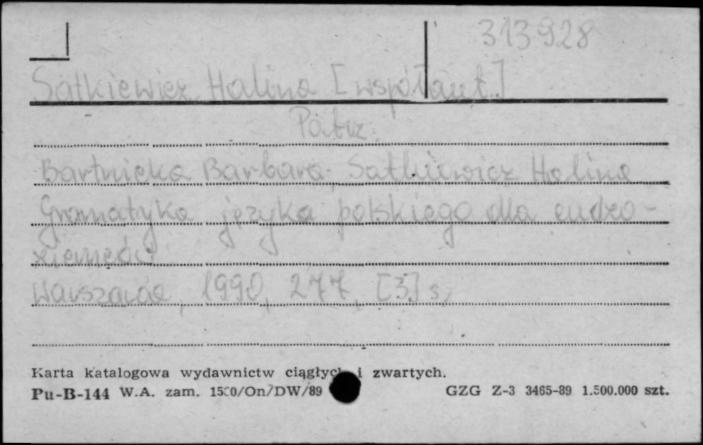 313928
Satkiewicz Halina [współaut.]
Patrz:
Bartnicka Barbara, Satkiewicz Halina
Gramatyka języka polskiego dla cudzo-
ziemców
Warszawa, 1990, 277, [3] s.
Karta katalogowa wydawnictw ciągłych i zwartych.
Pu-B-144 W.A. zam. 1500/On/DW/89 GZG Z-3 3465-89 1.500.000 szt.